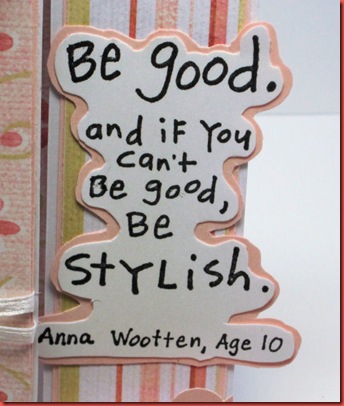 Be good.
and if You
can't
Be good,
Be
StYLish.
Anna Wootten, Age 10